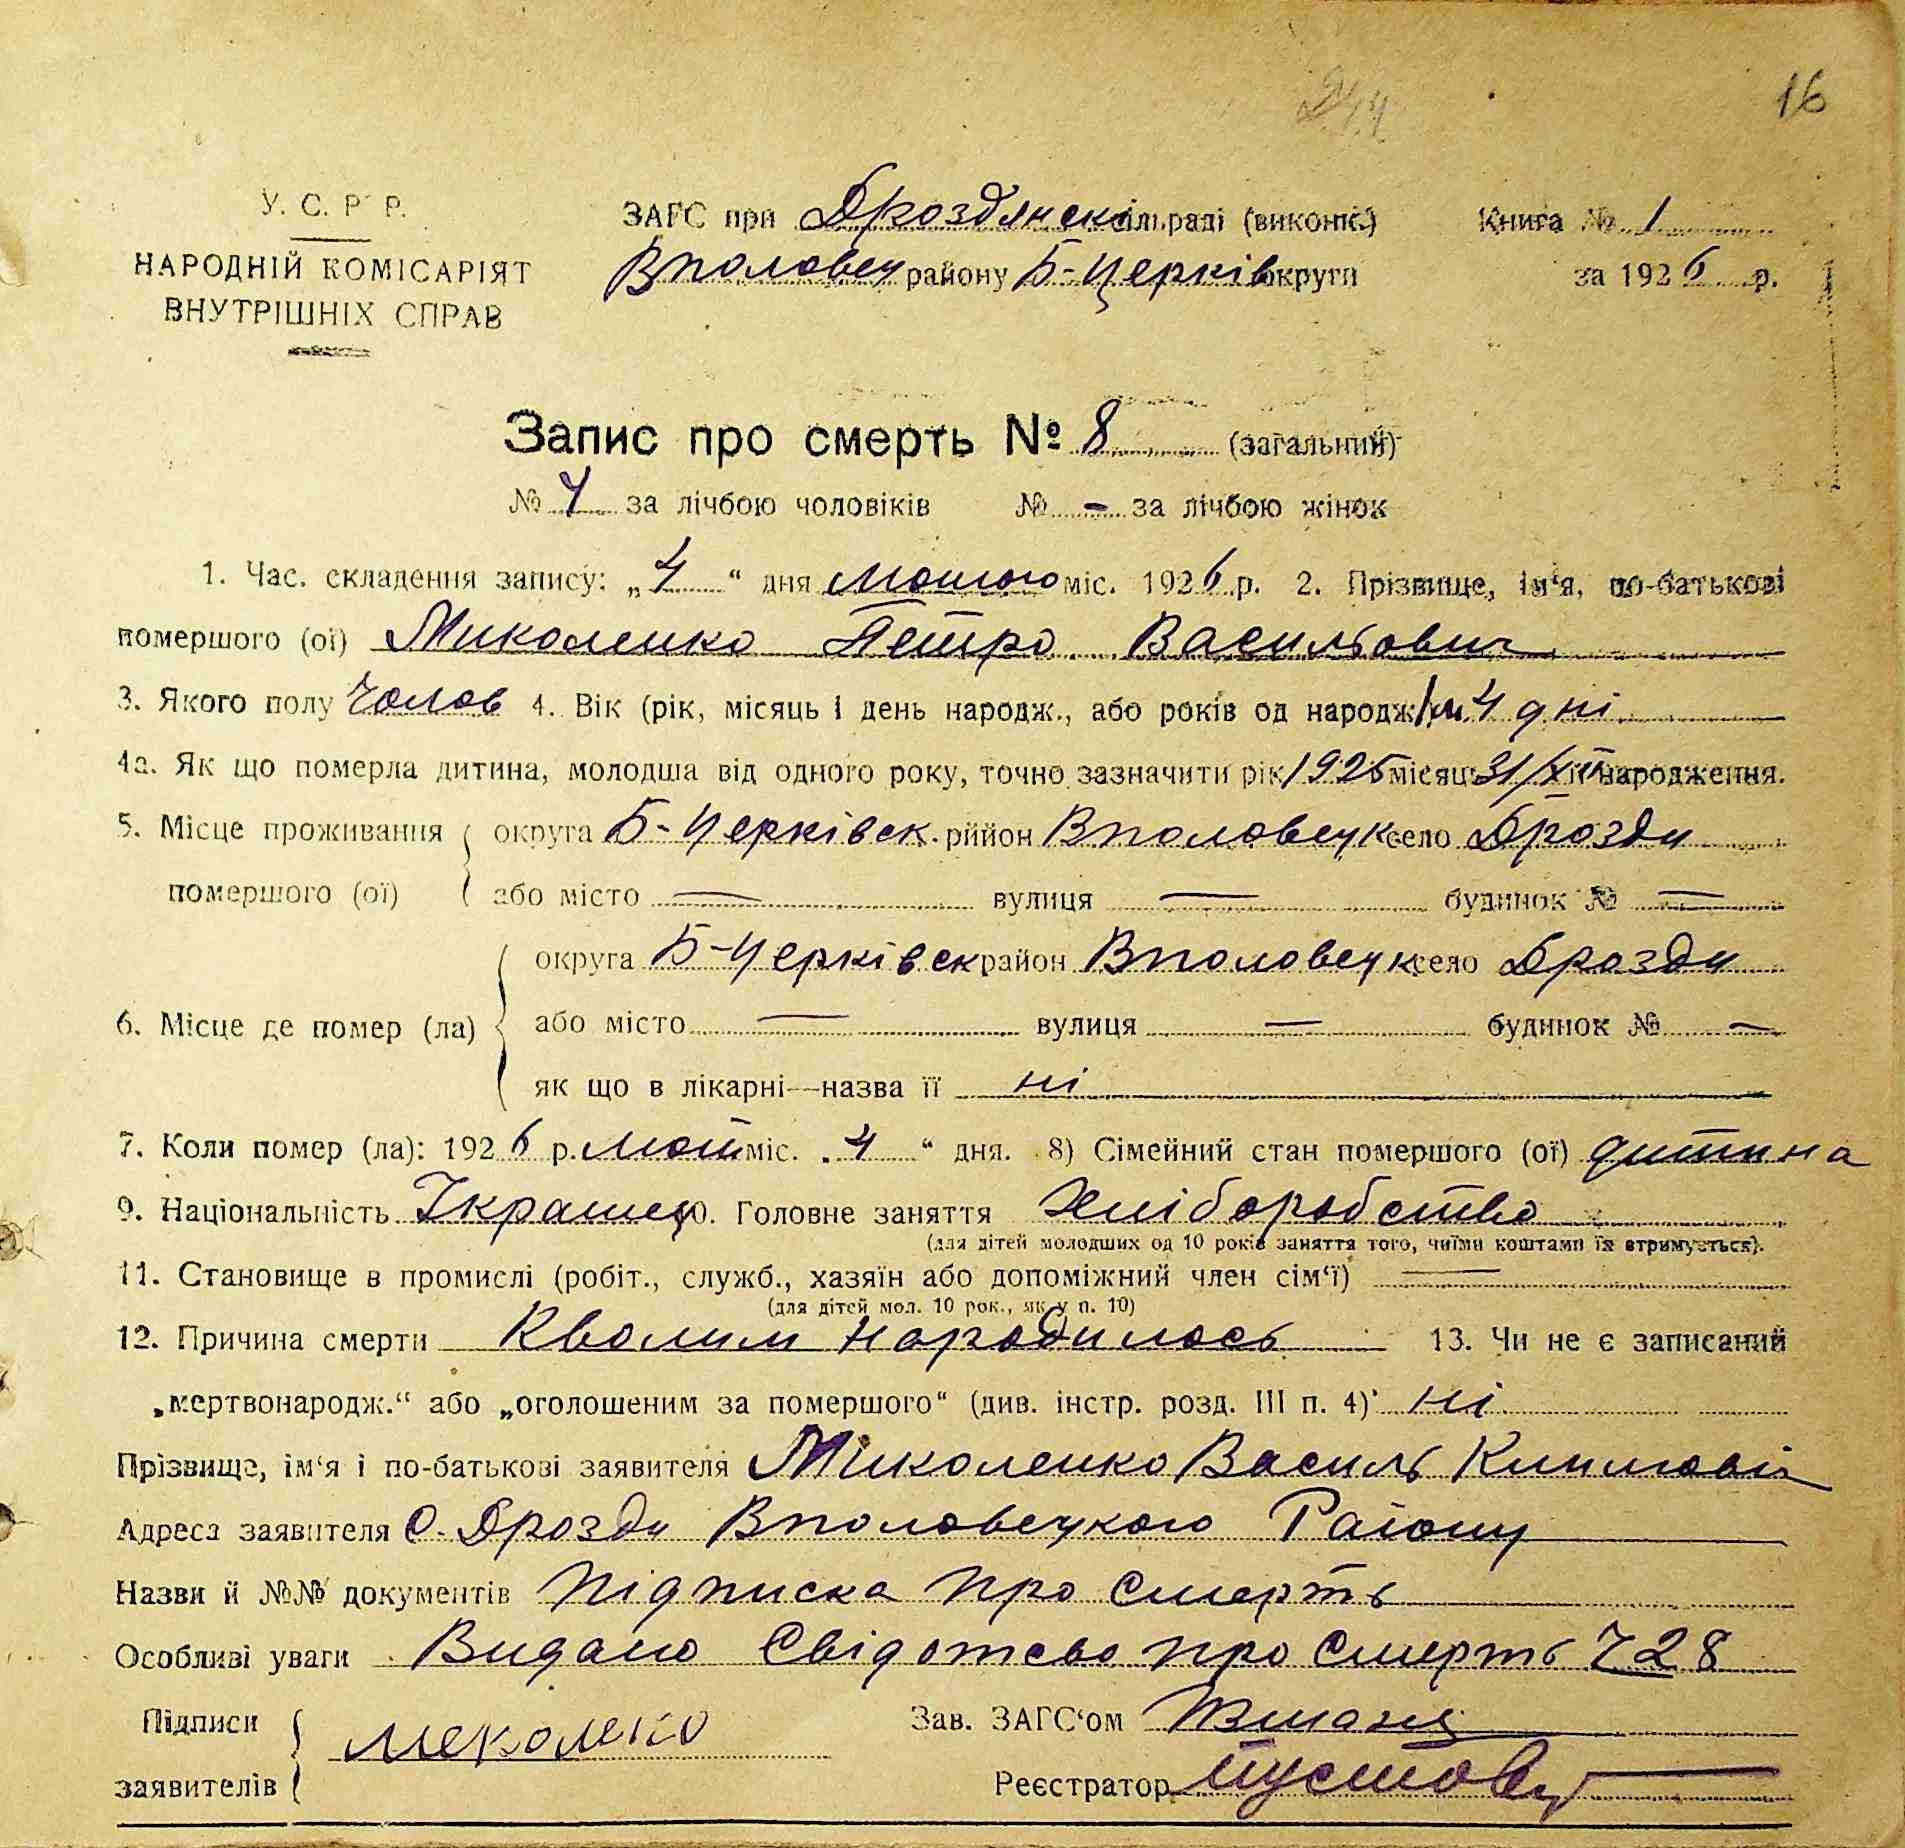 16
У. С. Р Р.
НАРОДНІЙ КОМІСАРІЯТ
ВНУТРІШНІХ СПРАВ
ЗАГС при Дроздянскільраді (виконк.)
Вполовец району Б-Церків округи
Книга № 1
за 1926 р.
Запис про смерть № 8 (загальний)
№ 4 за лічбою чоловіків № - за лічбою жінок
1. Час. складення запису: „4“ дня Лютого міс. 1926 р. 2. Прізвище, ім‘я, по-батькові
помершого (ої) Миколенко Петро Васильович
3. Якого полу Чолов 4. Вік (рік, місяць і день народж., або років од народж 1 м. 4 дні
4а. Як що померла дитина, молодша від одного року, точно зазначити рік 1925 місяць 31/XII народження.
5. Місце проживання округа Б-Церківск. рййон Вполовецк село Дрозди
помершого (ої) або місто — вулиця — будинок № —
округа Б-Церківск район Вполовецк село Дрозди
6. Місце де помер (ла) або місто — вулиця — будинок № —
як що в лікарні—назва її ні
7. Коли помер (ла): 1926 р. Лют міс. „4“ дня. 8) Сімейний стан помершого (ої) дитина
9. Національність Украинец 10. Головне заняття Хліборобство
(для дітей молодших од 10 років заняття того, чиїми коштами їх втримується).
11. Становище в промислі (робіт., служб., хазяїн або допоміжний член сім‘ї) —
(для дітей мол. 10 рок., як у п. 10)
12. Причина смерти Кволим народилось 13. Чи не є записаний
„мертвонародж.“ або „оголошеним за помершого“ (див. інстр. розд. III п. 4) ні
Прізвище, ім‘я і по-батькові заявителя Миколенко Василь Климовіч
Адреса заявителя С. Дрозди Вполовецкого Району
Назви й №№ документів Підписка про Смерть
Особливі уваги Видано Свідотсво про Смерть Ч 28
Підписи заявителів меколеко
Зав. ЗАГС‘ом
Реєстратор Пустов